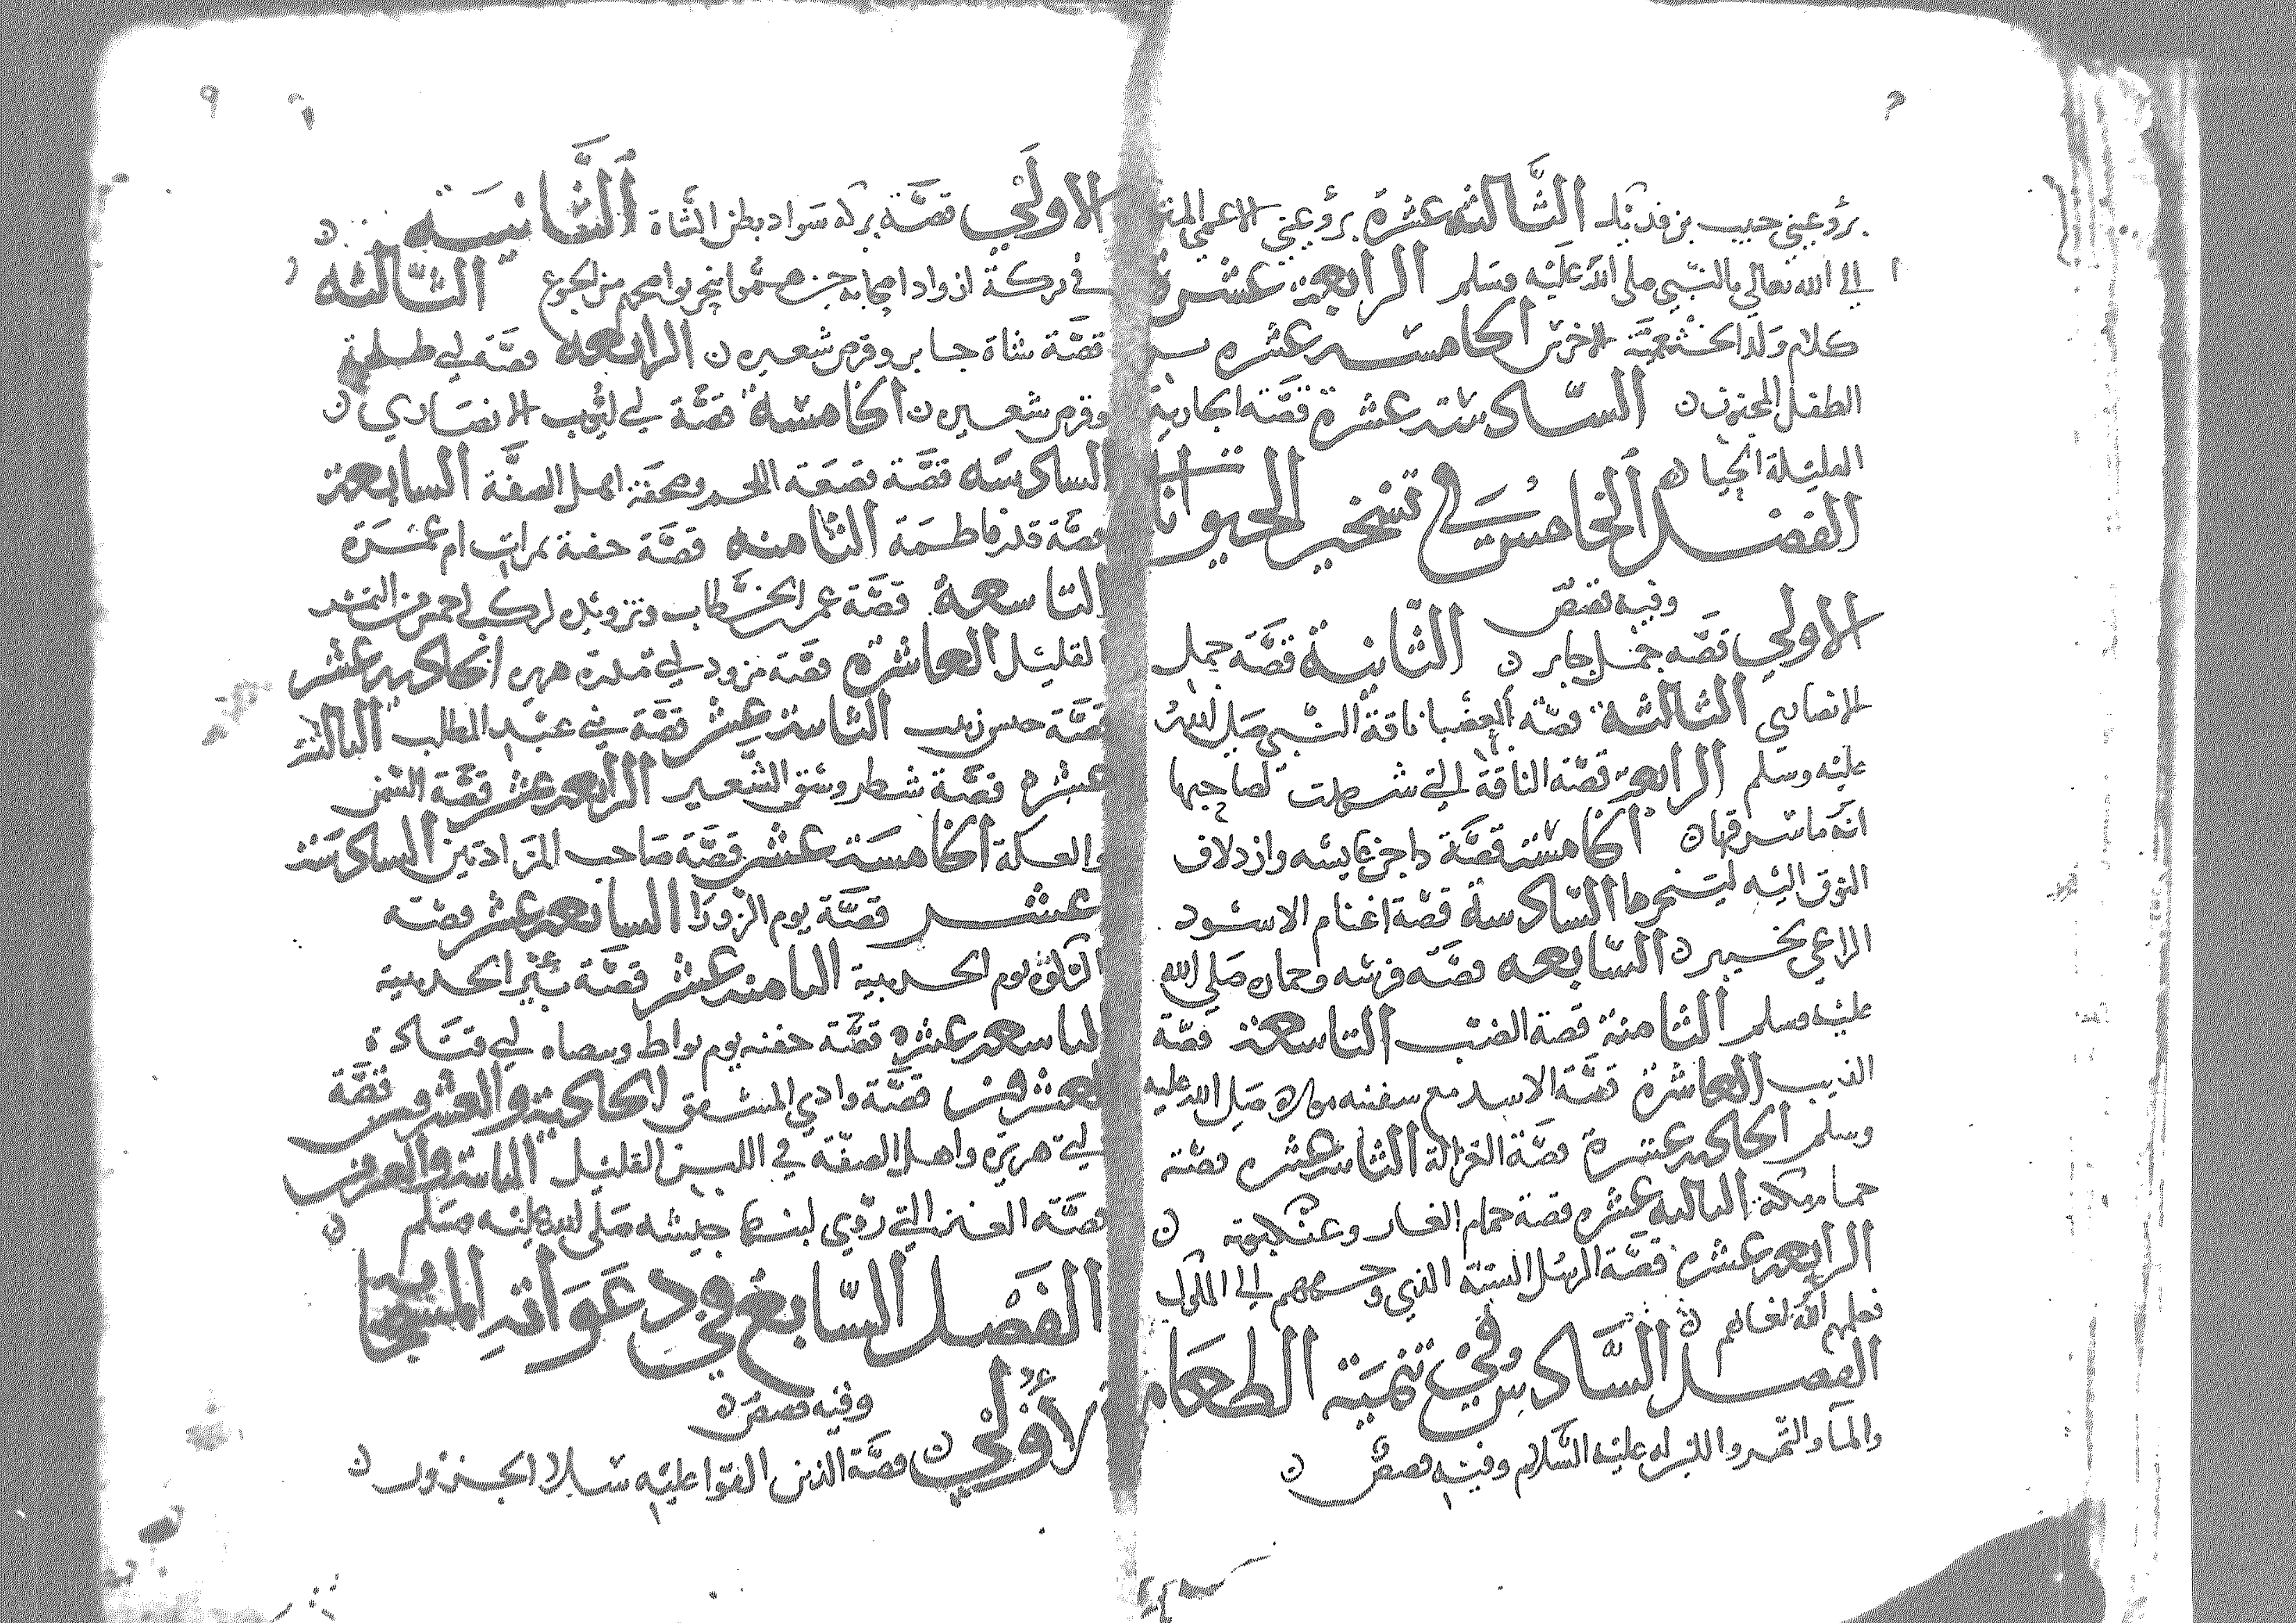 برؤ عيني حبيب بن فديك الثالثة عشرة برؤ عيني الاعمى
الى الله تعالى بالنبي صلى الله عليه وسلم الرابعة عشرة
كلام ولد الخثعمية الاخرس الخامسة عشره
الطفل المجنون السادسة عشرة قصة الجارية
الجيا
الفصل الخامس في تسخير الحيوانات
وفيه قصص
الاولى قصه جمل جابر الثانية قصة جمل
الانصاري الثالثة قصة العضبا ناقة النبي صلى الله
عليه وسلم الرابعة قصة الناقة التي شهدت لصاحبها
انه ما سرقها الخامسة قصة داجن عايشه وازدلاف
النوق اليه لينحرها السادسة قصة اغنام الاسود
الراعي بخيبر السابعه قصة فرسه وحماره صلى الله
عليه وسلم الثامنة قصة الضب التاسعة قصة
الذيب العاشرة قصة الاسد مع سفينه مولاه صلى الله عليه
وسلم الحادية عشرة قصة الغزالة الثانية عشره قصة
حمام مكة الثالثة عشره قصة حمام الغار وعنكبوته
الرابعة عشره قصة الرسل الستة الذي وجههم الى الملوك
فعلمهم الله لغاتهم
الفصل السادس في تنمية الطعام
والماء والتمر واللبن له عليه السلام وفيه قصص
الاولى قصة بركة سواد بطن الشاة الثانية
في بركة ازواد اصحابه حين هموا بنحر نواضحهم من الجوع الثالثه
قصة شاة جابر وقرص شعير الرابعه قصة ابي طلحة
وقرص شعير الخامسة قصة ابي ايوب الانصاري
السادسه قصة قصعة اللحم وصحفة اهل الصفة السابعة
قصة قدر فاطمة الثامنه قصة حفنة تمرات ام عمرة
التاسعة قصة عمر بن الخطاب وتزويده لركب احمس من التمر
القليل العاشرة قصة مزود ابي هريره الحادية عشر
قصة حيس زينب الثانية عشر قصة بني عبد المطلب الثالثة
عشره قصة شطر وسق الشعير الرابعة عشر قصة السمن
والعكة الخامسة عشر قصة صاحب المزادتين السادسة
عشر قصة يوم الزورا السابعة عشر قصة
الركوة يوم الحديبية الثامنة عشر قصة بئر الحديبية
التاسعة عشره قصة حفنه يوم بواط وميضاه ابي قتادة
العشرون قصة وادي المشقق الحادية والعشرون قصة
ابي هريرة واهل الصفة في اللبن القليل الثانية والعشرون
قصة العنز التي روى لبنها جيشه صلى الله عليه وسلم
الفصل السابع في دعواته المستجابة
وفيه قصص
الاولى قصة الذين القوا عليه سلا الجزور